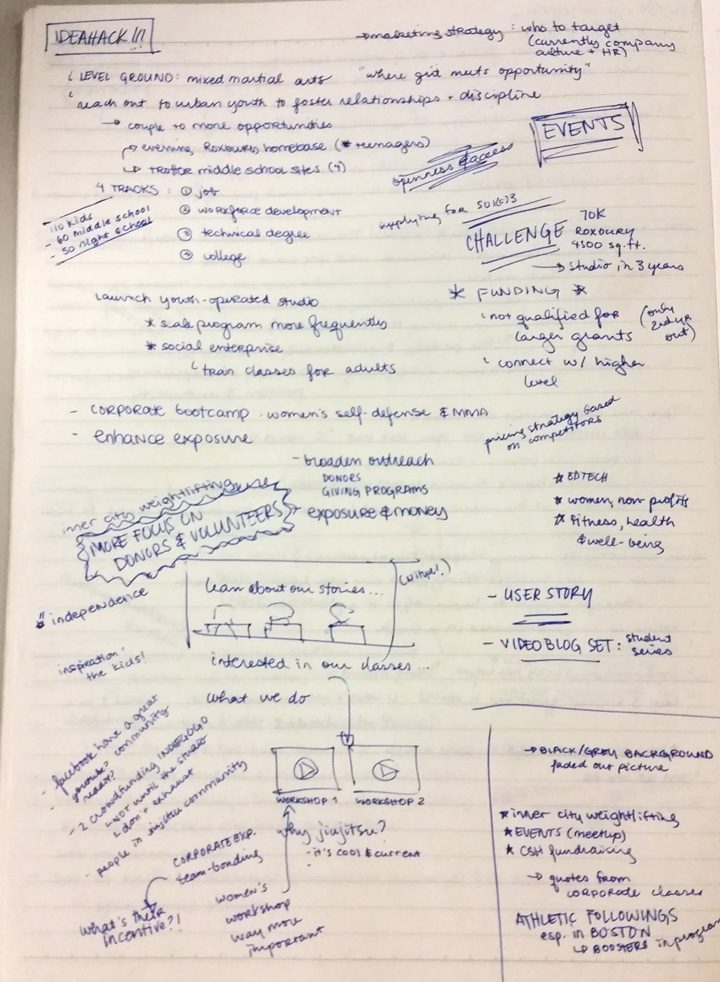 IDEAHACK!!!
→ marketing strategy: who to target
(currently company
culture + HR)
LEVEL GROUND: mixed martial arts "where grit meets opportunity"
reach out to urban youth to foster relationships + discipline
→ couple to more opportunities
→ evening, Roxbury homebase (* teenagers)
↳ Trotter middle school sites (4)
EVENTS
openness & access
4 TRACKS: ① job
② workforce development
③ technical degree
④ college
110 kids
- 60 middle school
- 50 night school
applying for 501(c)3
CHALLENGE
70K
ROXBURY
4500 sq.ft.
→ studio in 3 years
Launch youth-operated studio
* scale program more frequently
* social enterprise
↳ train classes for adults
* FUNDING *
not qualified for
larger grants
(only 2nd yr out)
connect w/ higher
level
- corporate bootcamp · women's self-defense & MMA
- enhance exposure
pricing strategy based
on competitors
- broaden outreach
DONORS
GIVING PROGRAMS
exposure & money
inner city weightlifting
MORE FOCUS ON
DONORS & VOLUNTEERS
* EDTECH
* women, non profits
* fitness, health
& well-being
learn about our stories...
* independence
inspiration:
the kids!
interested in our classes...
what we do
- USER STORY
- VIDEO BLOG SET: student
series
- facebook have a great
community
reddit?
- 2 crowdfunding INDEGOGO
↳ NOT until the studio
↳ don't exhaust
- people in jiujitsu community
WORKSHOP 1 WORKSHOP 2
why jiujitsu?
- it's cool & current
-
CORPORATE EXP.
team-bonding
what's their
incentive?!
women's
workshop
way more
important
→ BLACK/GREY BACKGROUND
faded out picture
* inner city weightlifting
* EVENTS (meetup)
* CSH fundraising
→ quotes from
corporate classes
ATHLETIC FOLLOWINGS
esp. in BOSTON
↳ BOOSTERS in program